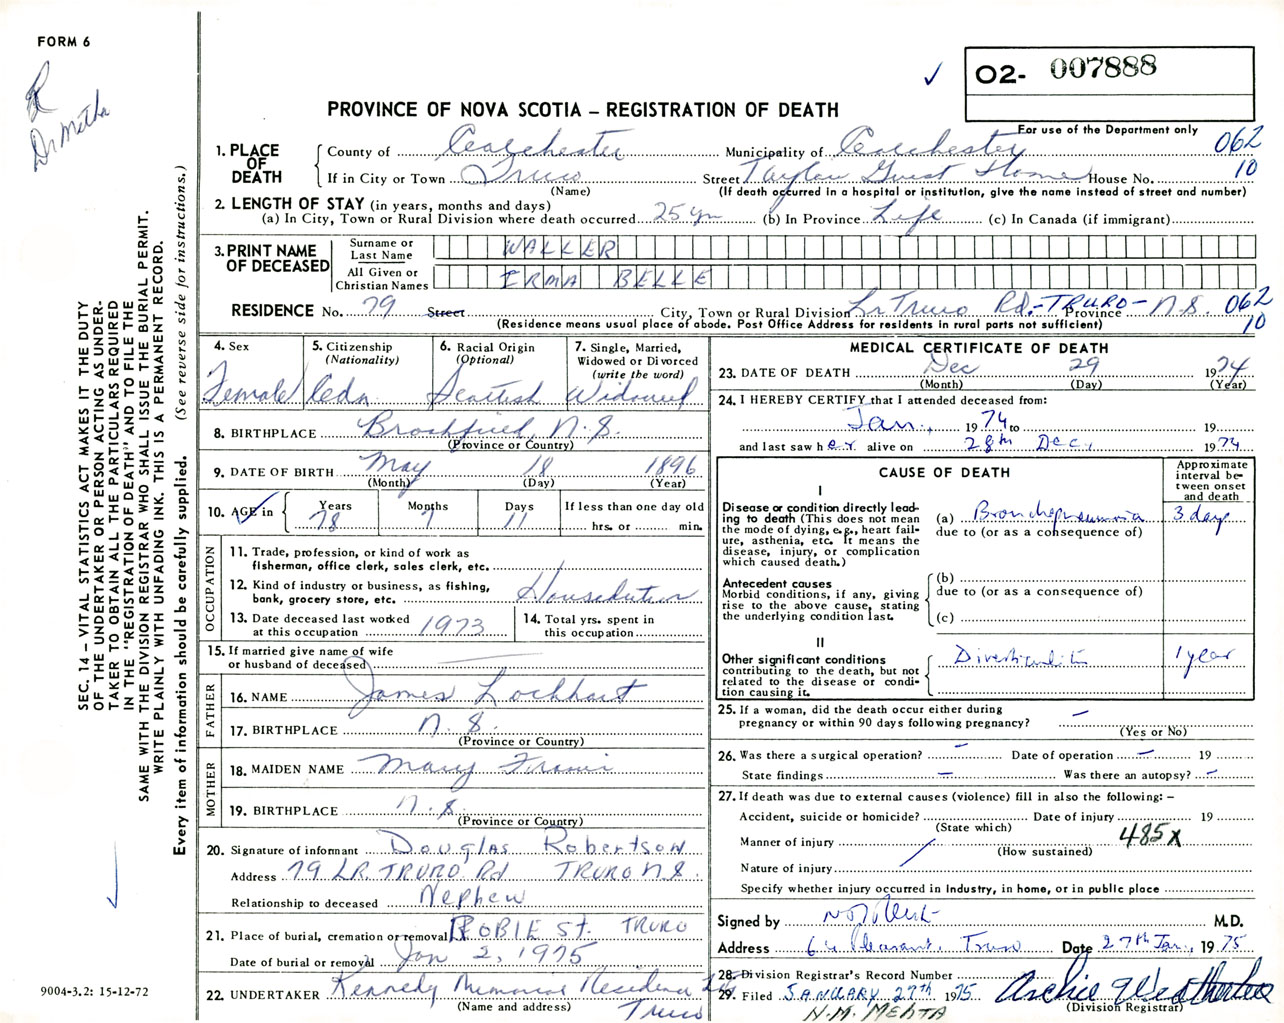 FORM 6
Dr Metha
O2- 007888
PROVINCE OF NOVA SCOTIA – REGISTRATION OF DEATH
For use of the Department only
1. PLACE OF DEATH
County of Colchester Municipality of Colchester 062
If in City or Town Truro Street Taylor Guest Home House No. 10
(Name) (If death occurred in a hospital or institution, give the name instead of street and number)
2. LENGTH OF STAY (in years, months and days)
(a) In City, Town or Rural Division where death occurred 25 yrs (b) In Province Life (c) In Canada (if immigrant)
3. PRINT NAME OF DECEASED
Surname or Last Name WALLER
All Given or Christian Names IRMA BELLE
RESIDENCE No. 79 Street City, Town or Rural Division Lr Truro Rd.-TRURO- Province N.S. 062
(Residence means usual place of abode. Post Office Address for residents in rural parts not sufficient) 10
4. Sex Female
5. Citizenship (Nationality) Cdn
6. Racial Origin (Optional) Scottish
7. Single, Married, Widowed or Divorced (write the word) Widowed
8. BIRTHPLACE Brookfield, N.S.
(Province or Country)
9. DATE OF BIRTH May 18 1896
(Month) (Day) (Year)
10. AGE in Years 78 Months 7 Days 11 If less than one day old hrs. or min.
OCCUPATION
11. Trade, profession, or kind of work as fisherman, office clerk, sales clerk, etc.
12. Kind of industry or business, as fishing, bank, grocery store, etc. Houseduties
13. Date deceased last worked at this occupation 1973
14. Total yrs. spent in this occupation
15. If married give name of wife or husband of deceased
FATHER
16. NAME James Lockhart
17. BIRTHPLACE N.S.
(Province or Country)
MOTHER
18. MAIDEN NAME Mary
19. BIRTHPLACE N.S.
(Province or Country)
20. Signature of informant Douglas Robertson
Address 79 LR. TRURO Rd TRURO N.S.
Relationship to deceased Nephew
21. Place of burial, cremation or removal ROBIE St. TRURO
Date of burial or removal Jan 2, 1975
22. UNDERTAKER Kennedy Memorial Residence Ltd
(Name and address) Truro
MEDICAL CERTIFICATE OF DEATH
23. DATE OF DEATH Dec 29 1974
(Month) (Day) (Year)
24. I HEREBY CERTIFY that I attended deceased from:
Jan., 1974 to 19
and last saw her alive on 28th Dec, 1974
CAUSE OF DEATH
Approximate interval between onset and death
I
Disease or condition directly leading to death (This does not mean the mode of dying, e.g., heart failure, asthenia, etc. It means the disease, injury, or complication which caused death.)
(a) Bronchopneumonia 3 days
due to (or as a consequence of)
Antecedent causes
Morbid conditions, if any, giving rise to the above cause, stating the underlying condition last.
(b)
due to (or as a consequence of)
(c)
II
Other significant conditions contributing to the death, but not related to the disease or condition causing it.
Diverticulitis 1 year
25. If a woman, did the death occur either during pregnancy or within 90 days following pregnancy? –
(Yes or No)
26. Was there a surgical operation? – Date of operation – 19
State findings – Was there an autopsy? –
27. If death was due to external causes (violence) fill in also the following: –
Accident, suicide or homicide? Date of injury 19
(State which)
Manner of injury 485X
(How sustained)
Nature of injury
Specify whether injury occurred in Industry, in home, or in public place
Signed by M.D.
Address 64 Pleasant. Truro Date 27th Jan., 1975
28. Division Registrar's Record Number
29. Filed JANUARY 27th 1975 Archie
N.M. MEHTA (Division Registrar)
SEC. 14 – VITAL STATISTICS ACT MAKES IT THE DUTY
OF THE UNDERTAKER OR PERSON ACTING AS UNDER-
TAKER TO OBTAIN ALL THE PARTICULARS REQUIRED
IN THE "REGISTRATION OF DEATH" AND TO FILE THE
SAME WITH THE DIVISION REGISTRAR WHO SHALL ISSUE THE BURIAL PERMIT.
WRITE PLAINLY WITH UNFADING INK. THIS IS A PERMANENT RECORD.
Every item of information should be carefully supplied. (See reverse side for instructions.)
9004-3.2: 15-12-72